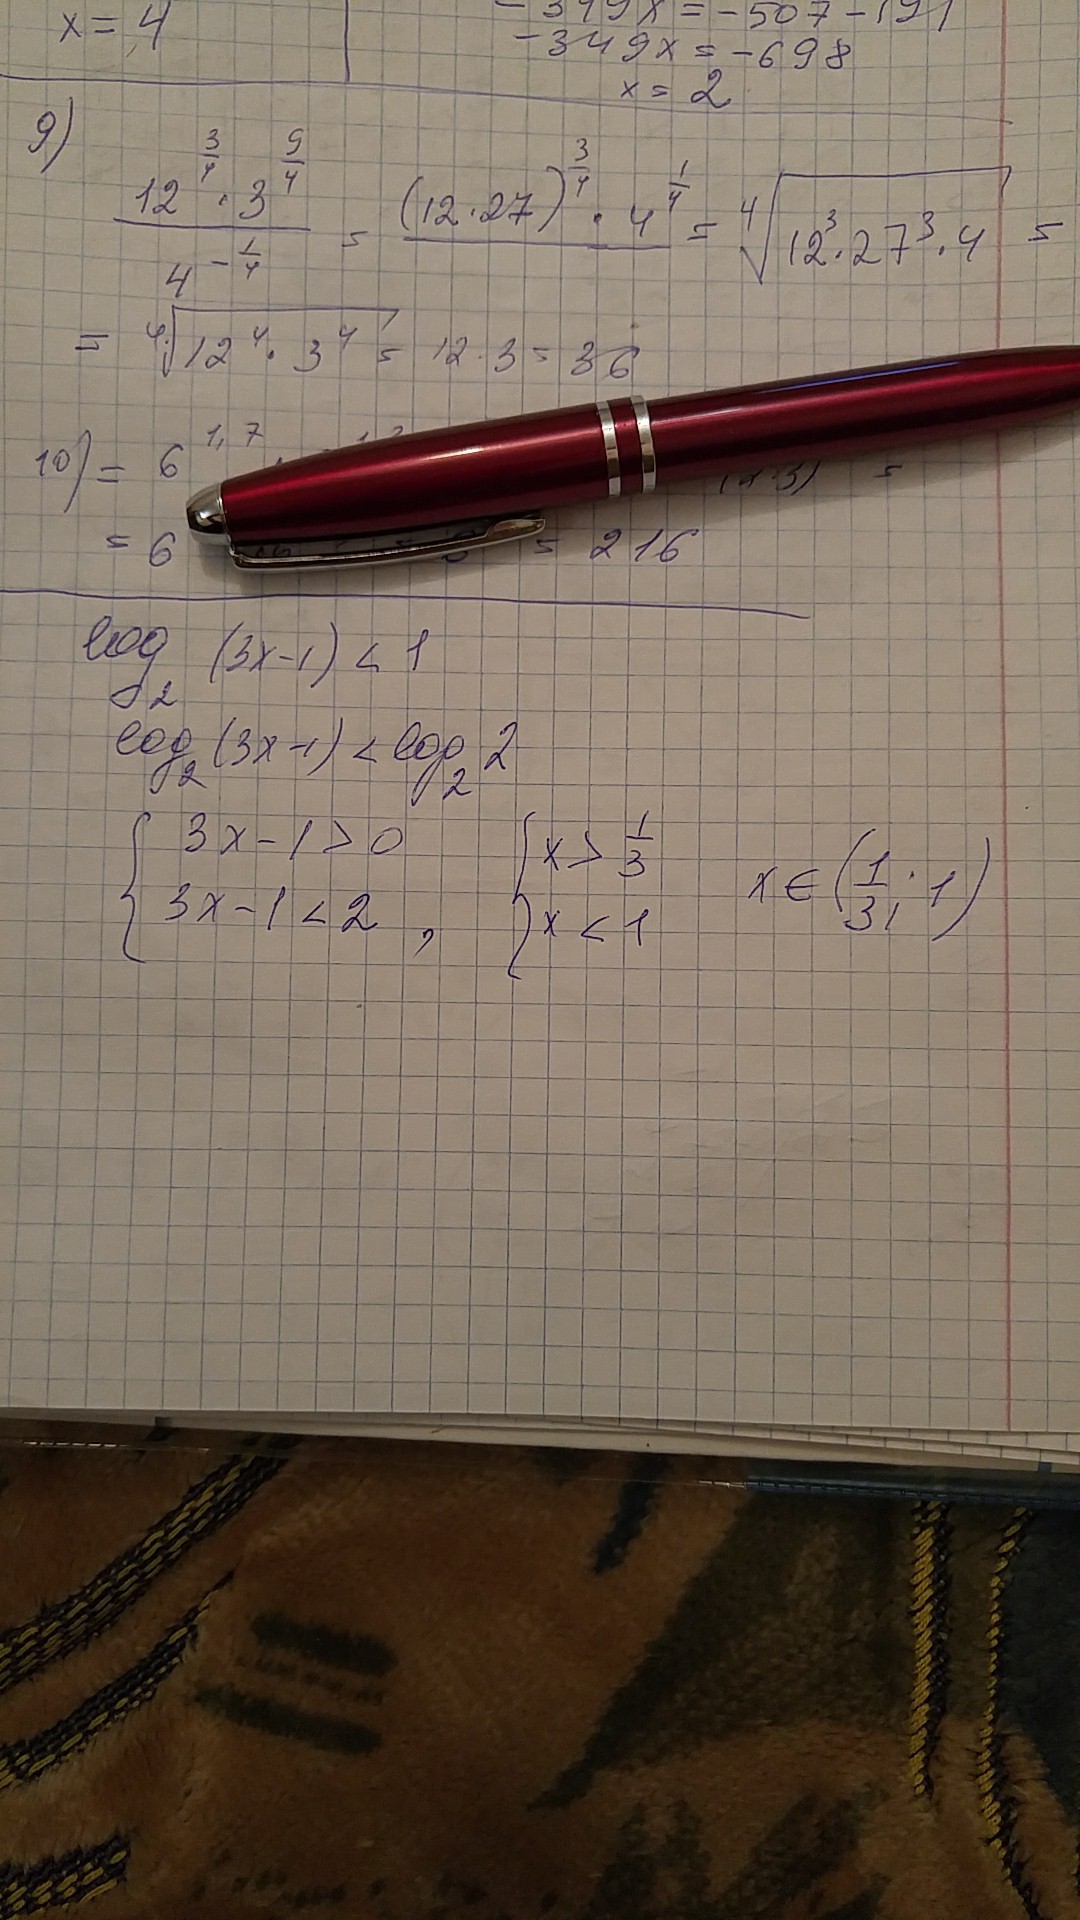 x = 4
-349x = -507-191
-349x = -698
x = 2
9)
12^(3/4) · 3^(9/4) / 4^(-1/4) = (12·27)^(3/4) · 4^(1/4) = ⁴√(12³·27³·4) =
= ⁴√(12⁴·3⁴) = 12·3 = 36
10) = 6^(1,7) =
= 6 = 216
log₂ (3x-1) < 1
log₂ (3x-1) < log₂ 2
{ 3x-1 > 0 { x > 1/3 x ∈ (1/3; 1)
3x-1 < 2 , x < 1